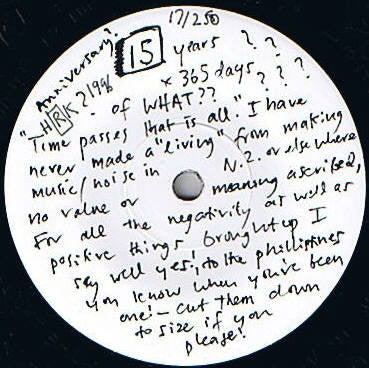 17/250
Anniversary?
15 years ? ?
HRK? 1996
× 365 days ? ? ?
of WHAT??
"Time passes that is all." I have
never made a "living" from making
music/noise in N.Z. or elsewhere
no value or meaning ascribed,
For all the negativity as well as
positive things brought up I
say well yes!, to the phillistines
you know when you've been
one! - cut them down
to size if you
please!